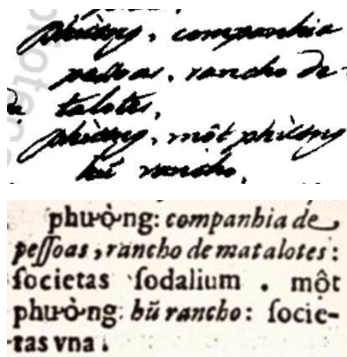 phường, companhia
pessoas, rancho de
talotes,
phường, một phường
hũ rancho,
phường: companhia de
peſſoas, rancho de matalotes:
ſocietas ſodalium. một
phường. hũ rancho: ſocie-
tas vna.